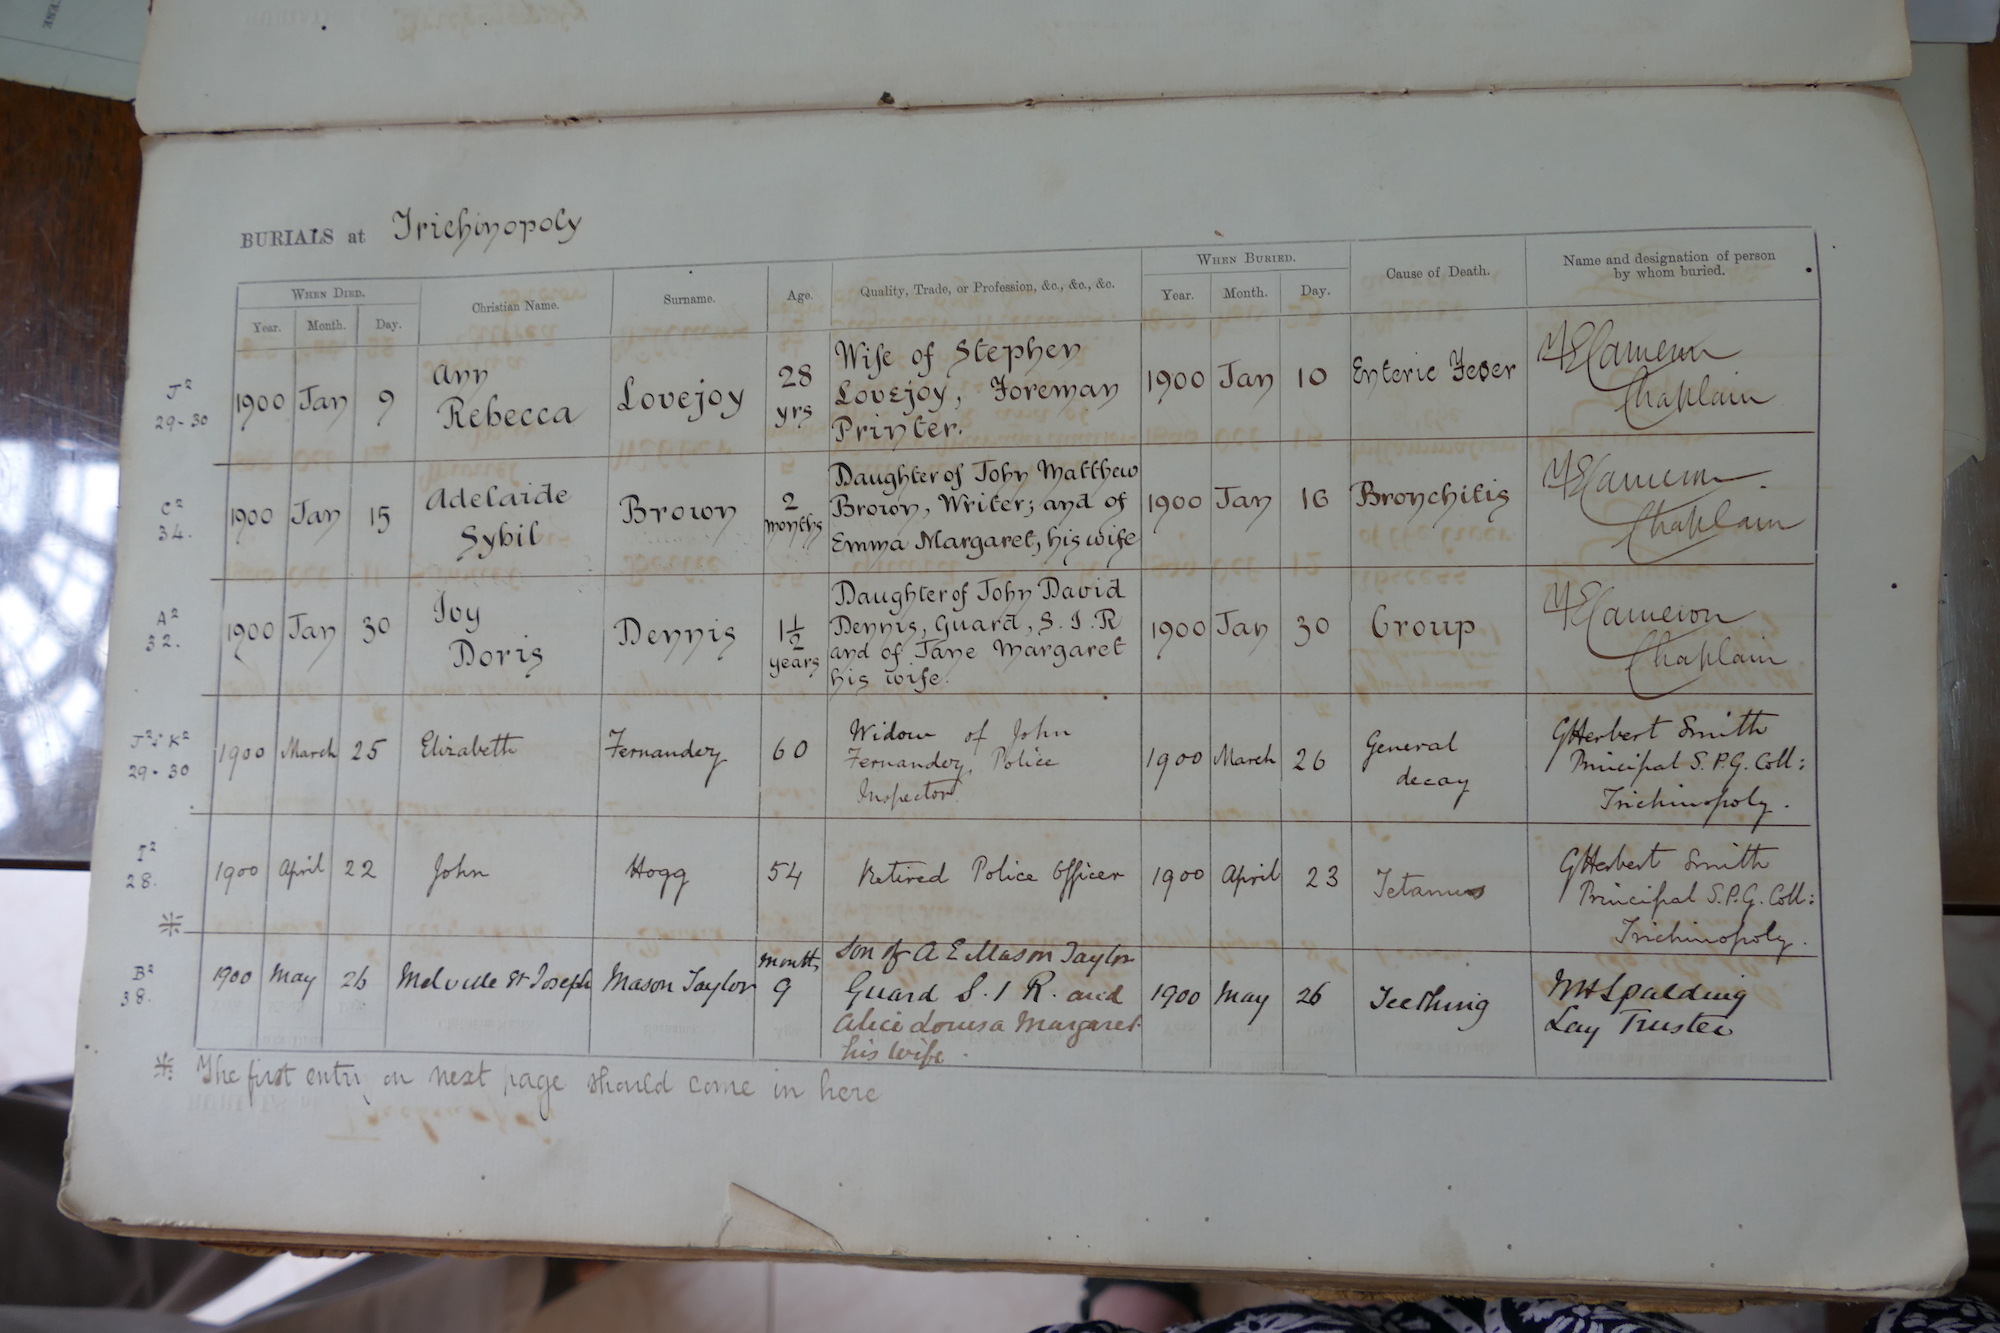 BURIALS at Trichinopoly
WHEN DIED.
Christian Name.
Surname.
Age.
Quality, Trade, or Profession, &c., &c., &c.
WHEN BURIED.
Cause of Death.
Name and designation of person
by whom buried.
Year. Month. Day.
Year. Month. Day.
J2
29-30
1900 Jan 9
Ann
Rebecca
Lovejoy
28
yrs
Wife of Stephen
Lovejoy, Foreman
Printer.
1900 Jan 10
Enteric Fever
Cameron
Chaplain
C2
34.
1900 Jan 15
Adelaide
Sybil
Brown
2
months
Daughter of John Matthew
Brown, Writer; and of
Emma Margaret, his wife
1900 Jan 16
Bronchitis
Cameron
Chaplain
A2
32.
1900 Jan 30
Ivy
Doris
Dennis
1½
years
Daughter of John David
Dennis, Guard, S.I.R
and of Jane Margaret
his wife.
1900 Jan 30
Croup
Cameron
Chaplain
J2 & K2
29-30
1900 March 25
Elizabeth
Fernandez
60
Widow of John
Fernandez, Police
Inspector
1900 March 26
General
decay
G Herbert Smith
Principal S.P.G. Coll:
Trichinopoly.
I2
28.
1900 April 22
John
Hogg
54
Retired Police Officer
1900 April 23
Tetanus
G Herbert Smith
Principal S.P.G. Coll:
Trichinopoly.
※
B2
38.
1900 May 26
Melville St Joseph
Mason Taylor
months
9
Son of A E Mason Taylor
Guard S.I R. and
Alice Louisa Margaret
his wife.
1900 May 26
Teething
W H Spalding
Lay Trustee
※ The first entry on next page should come in here